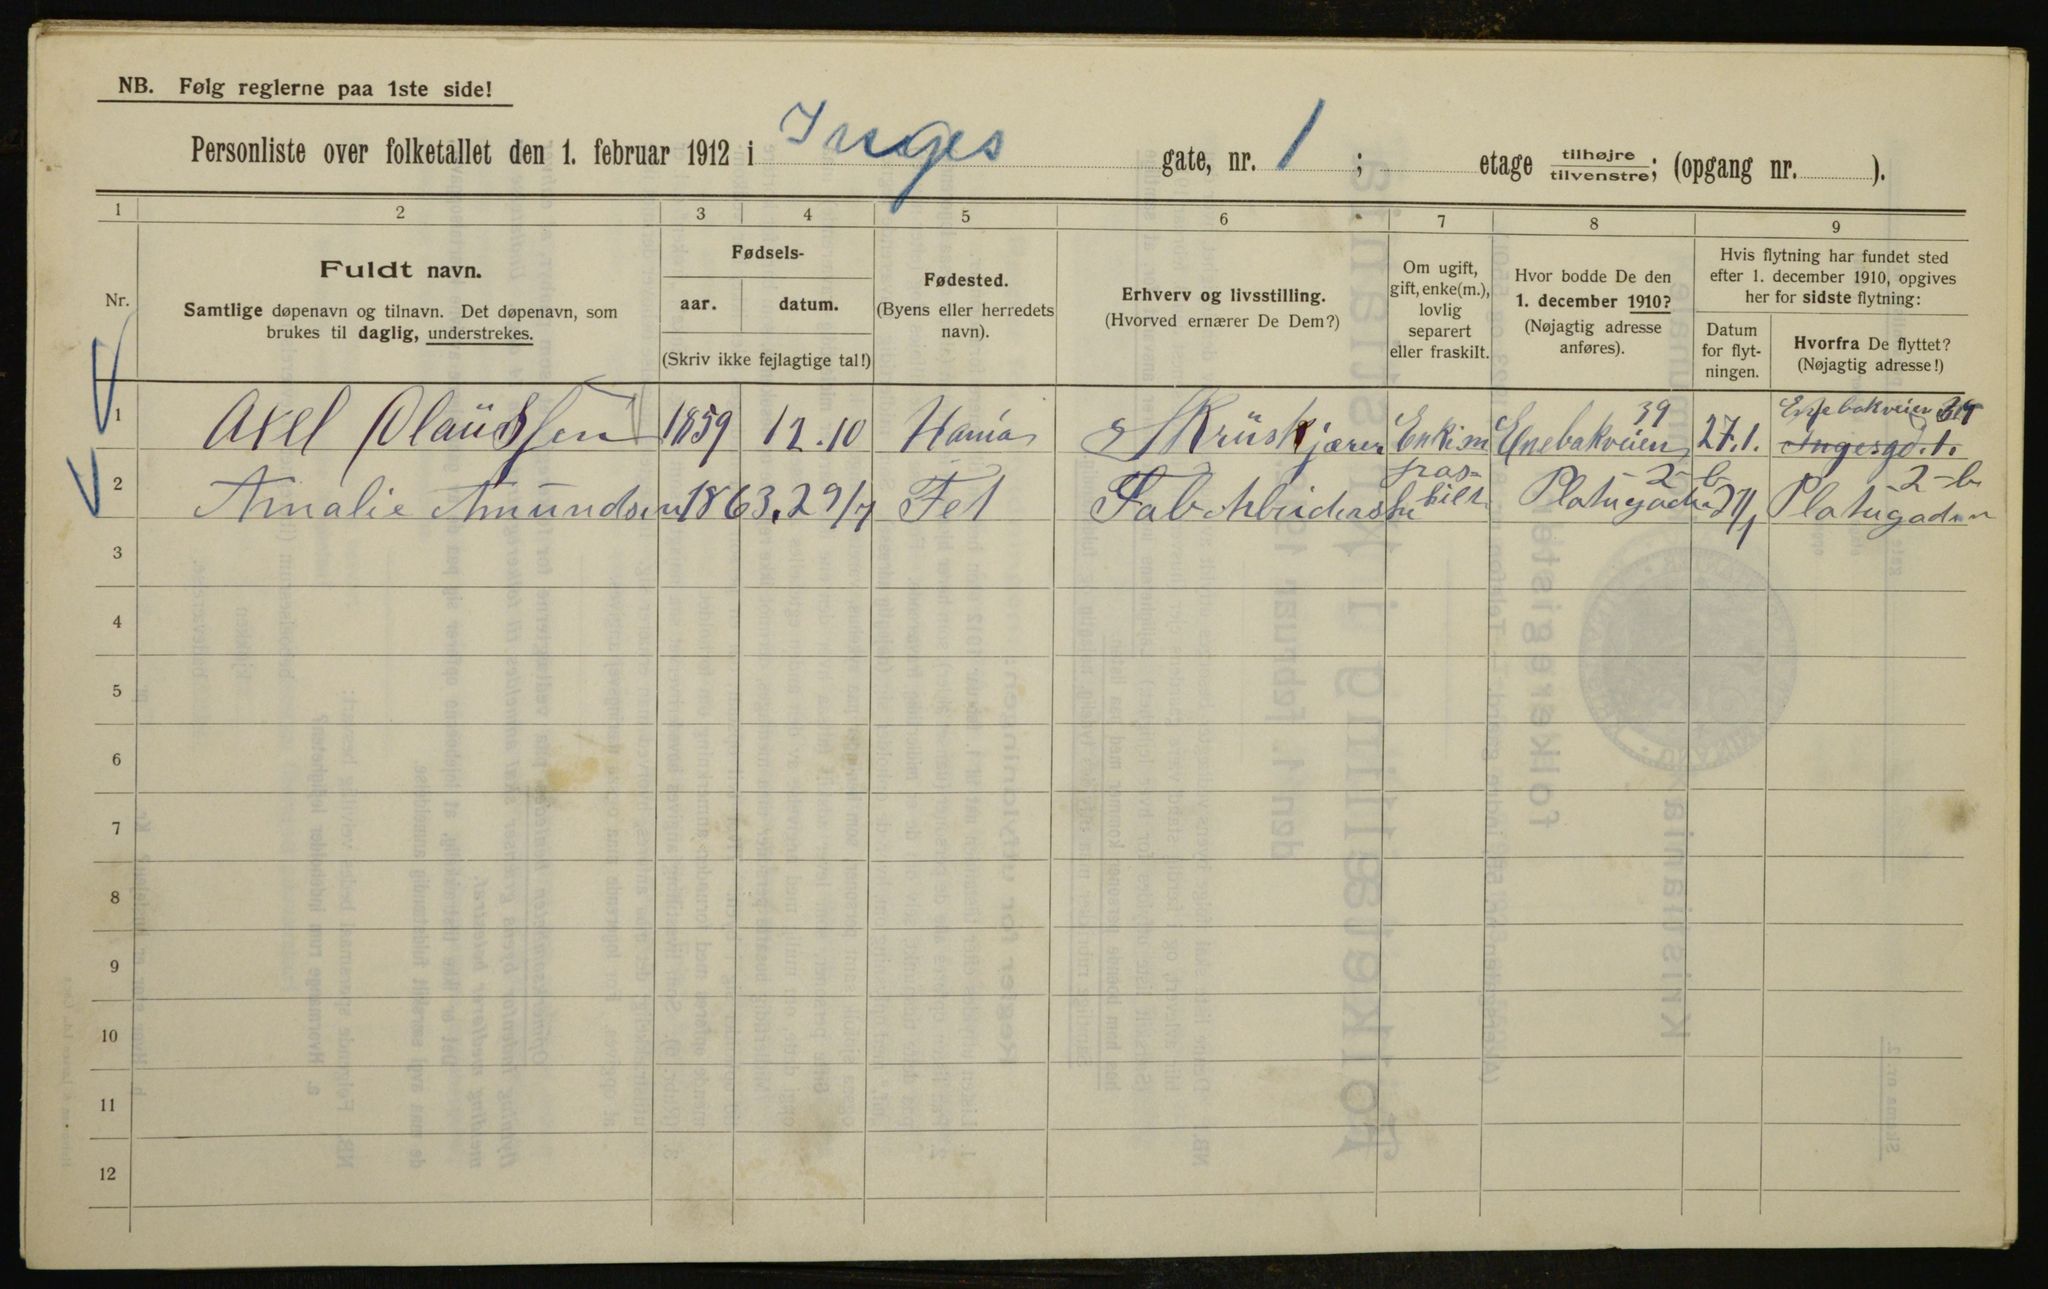 NB. Følg reglerne paa 1ste side!
Personliste over folketallet den 1. februar 1912 i Inges gate, nr. 1 ; etage tilhøjre tilvenstre; (opgang nr. ).
1 2 3 4 5 6 7 8 9
Nr.
Fuldt navn.
Samtlige døpenavn og tilnavn. Det døpenavn, som
brukes til daglig, understrekes.
Fødsels-
aar. datum.
(Skriv ikke fejlagtige tal!)
Fødested.
(Byens eller herredets
navn).
Erhverv og livsstilling.
(Hvorved ernærer De Dem?)
Om ugift,
gift, enke(m.),
lovlig
separert
eller fraskilt.
Hvor bodde De den
1. december 1910?
(Nøjagtig adresse
anføres).
Hvis flytning har fundet sted
efter 1. december 1910, opgives
her for sidste flytning:
Datum
for flyt-
ningen.
Hvorfra De flyttet?
(Nøjagtig adresse!)
1 Axel Olaüssen 1859 12.10 Skrüskjærer Enkim Enebakveien 39 27.1. Enebakveien 39 Ingesgd. 1.
2 Amalie Amundsen 1863. 29/7 Fet Fabarbeiderske fraskilt Platugaden 2-b 27/1 Platugaden 2-b
3
4
5
6
7
8
9
10
11
12